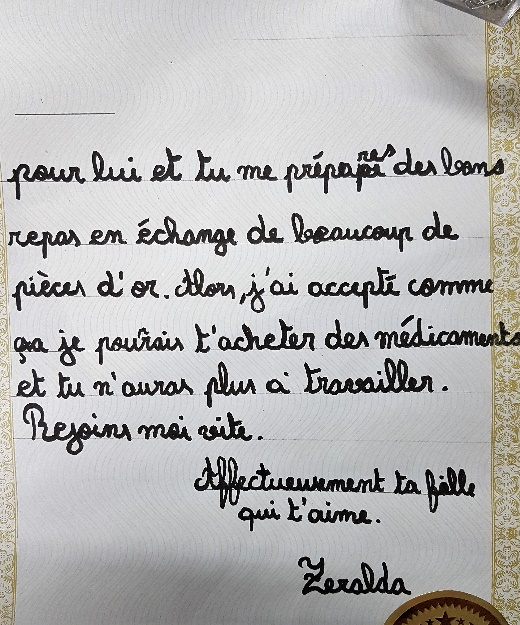 pour lui et tu me prépares des bons
repas en échange de beaucoup de
pièces d'or. Alors, j'ai accepté comme
ça je pourrais t'acheter des médicaments
et tu n'auras plus à travailler.
Rejoins moi vite.
Affectueusement ta fille
qui t'aime.
Zeralda